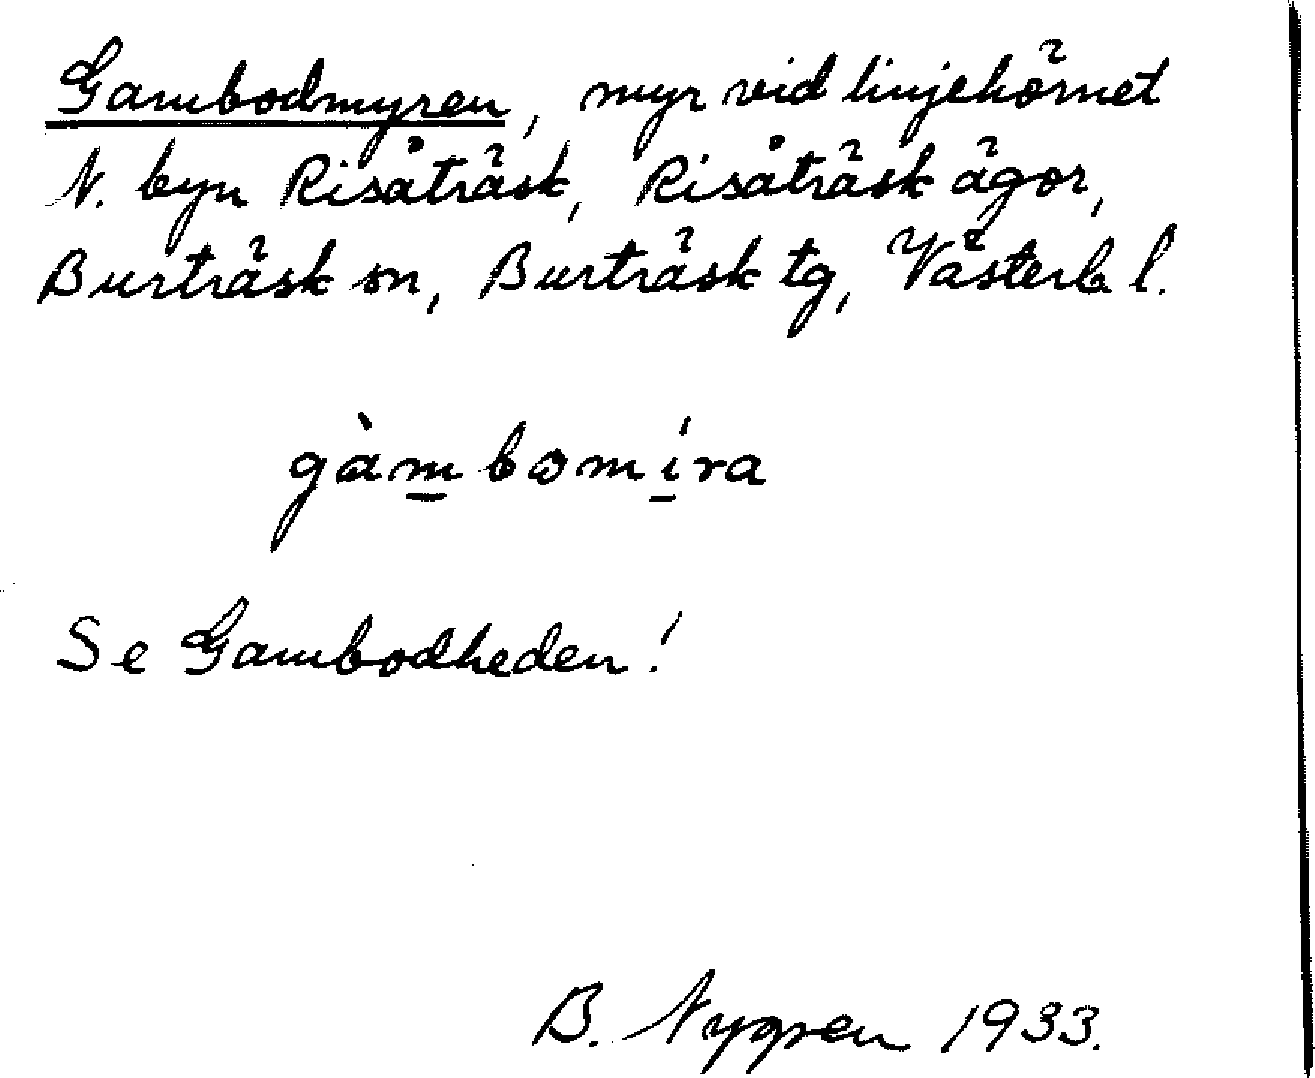 Gambodmyren, myr vid linjehörnet
N. byn Risåträsk, Risåträsk ägor,
Burträsk sn, Burträsk tg, Västerb l.
gàm̲bomí̲ra
Se Gambodheden!
B. Nygren 1933.